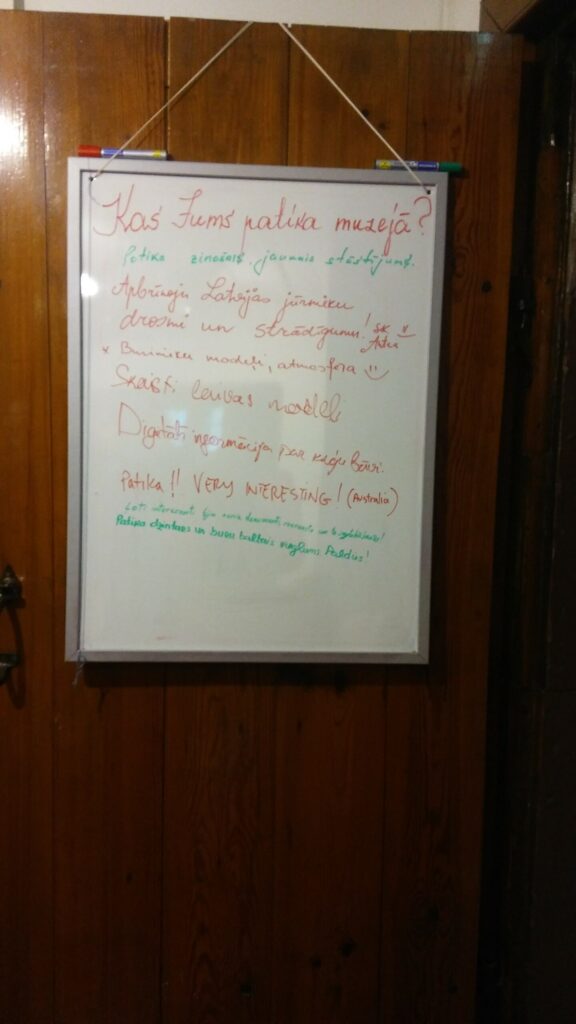 Kas Jums patika muzejā?
Patika zinošais, jaunais stāstījums.
Apbrīnoju Latvijas jūrnieku
drosmi un strādīgumu!
* Burinieku modeļi, atmosfera :)
Skaisti laivas modeļi
Digitāli informācija par kuģu
Patika!! VERY INTERESTING! (Australia)
Ļoti interesanti bija
Patika dzintars un buru Paldies!